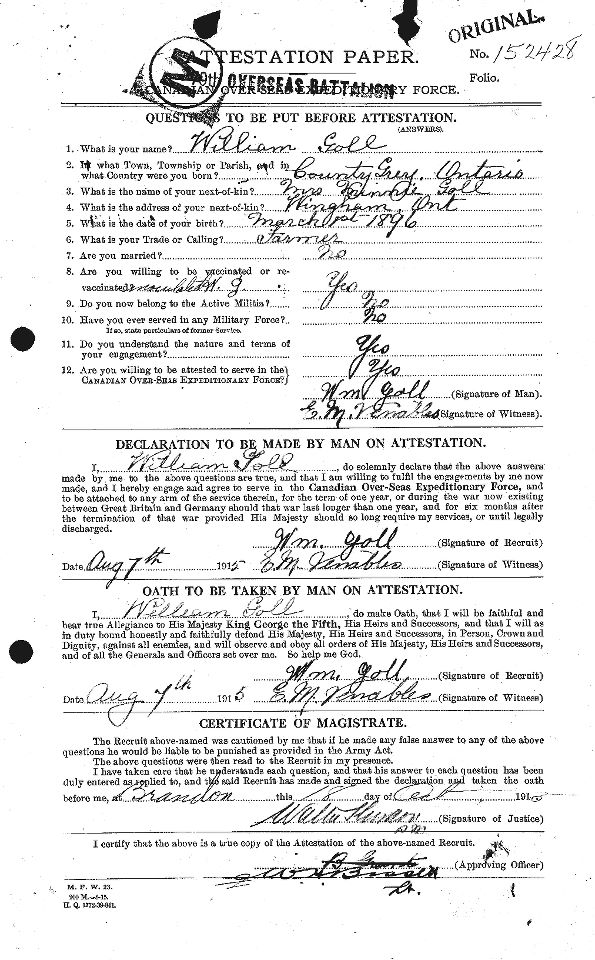 ORIGINAL.
ATTESTATION PAPER.
No. 152428
Folio.
79th OVERSEAS BATTALION
CANADIAN OVER-SEAS EXPEDITIONARY FORCE.
M
QUESTIONS TO BE PUT BEFORE ATTESTATION.
(ANSWERS)
1. What is your name? William Goll
2. In what Town, Township or Parish, and in
what Country were you born? County Grey. Ontario
3. What is the name of your next-of-kin? Mrs Goll
4. What is the address of your next-of-kin? Wingham, Ont
5. What is the date of your birth? March 1896
6. What is your Trade or Calling? Farmer
7. Are you married? no
8. Are you willing to be vaccinated or re-
vaccinated W. G. Yes
9. Do you now belong to the Active Militia? No
10. Have you ever served in any Military Force? No
If so, state particulars of former Service.
11. Do you understand the nature and terms of
your engagement? Yes
12. Are you willing to be attested to serve in the
CANADIAN OVER-SEAS EXPEDITIONARY FORCE? Yes
Wm Goll (Signature of Man).
E. M. Venables (Signature of Witness).
DECLARATION TO BE MADE BY MAN ON ATTESTATION.
I, William Goll, do solemnly declare that the above answers
made by me to the above questions are true, and that I am willing to fulfil the engagements by me now
made, and I hereby engage and agree to serve in the Canadian Over-Seas Expeditionary Force, and
to be attached to any arm of the service therein, for the term of one year, or during the war now existing
between Great Britain and Germany should that war last longer than one year, and for six months after
the termination of that war provided His Majesty should so long require my services, or until legally
discharged.
Wm. Goll (Signature of Recruit)
Date Aug 7th 1915 E. M. Venables (Signature of Witness)
OATH TO BE TAKEN BY MAN ON ATTESTATION.
I, William Goll, do make Oath, that I will be faithful and
bear true Allegiance to His Majesty King George the Fifth, His Heirs and Successors, and that I will as
in duty bound honestly and faithfully defend His Majesty, His Heirs and Successors, in Person, Crown and
Dignity, against all enemies, and will observe and obey all orders of His Majesty, His Heirs and Successors,
and of all the Generals and Officers set over me. So help me God.
Wm. Goll (Signature of Recruit)
Date Aug 7th 1915 E. M. Venables (Signature of Witness)
CERTIFICATE OF MAGISTRATE.
The Recruit above-named was cautioned by me that if he made any false answer to any of the above
questions he would be liable to be punished as provided in the Army Act.
The above questions were then read to the Recruit in my presence.
I have taken care that he understands each question, and that his answer to each question has been
duly entered as replied to, and the said Recruit has made and signed the declaration and taken the oath
before me, at Brandon this 18 day of Oct 1915
(Signature of Justice)
I certify that the above is a true copy of the Attestation of the above-named Recruit.
(Approving Officer)
Lt.
M. F. W. 23.
200 M.-8-15.
H. Q. 1772-39-841.